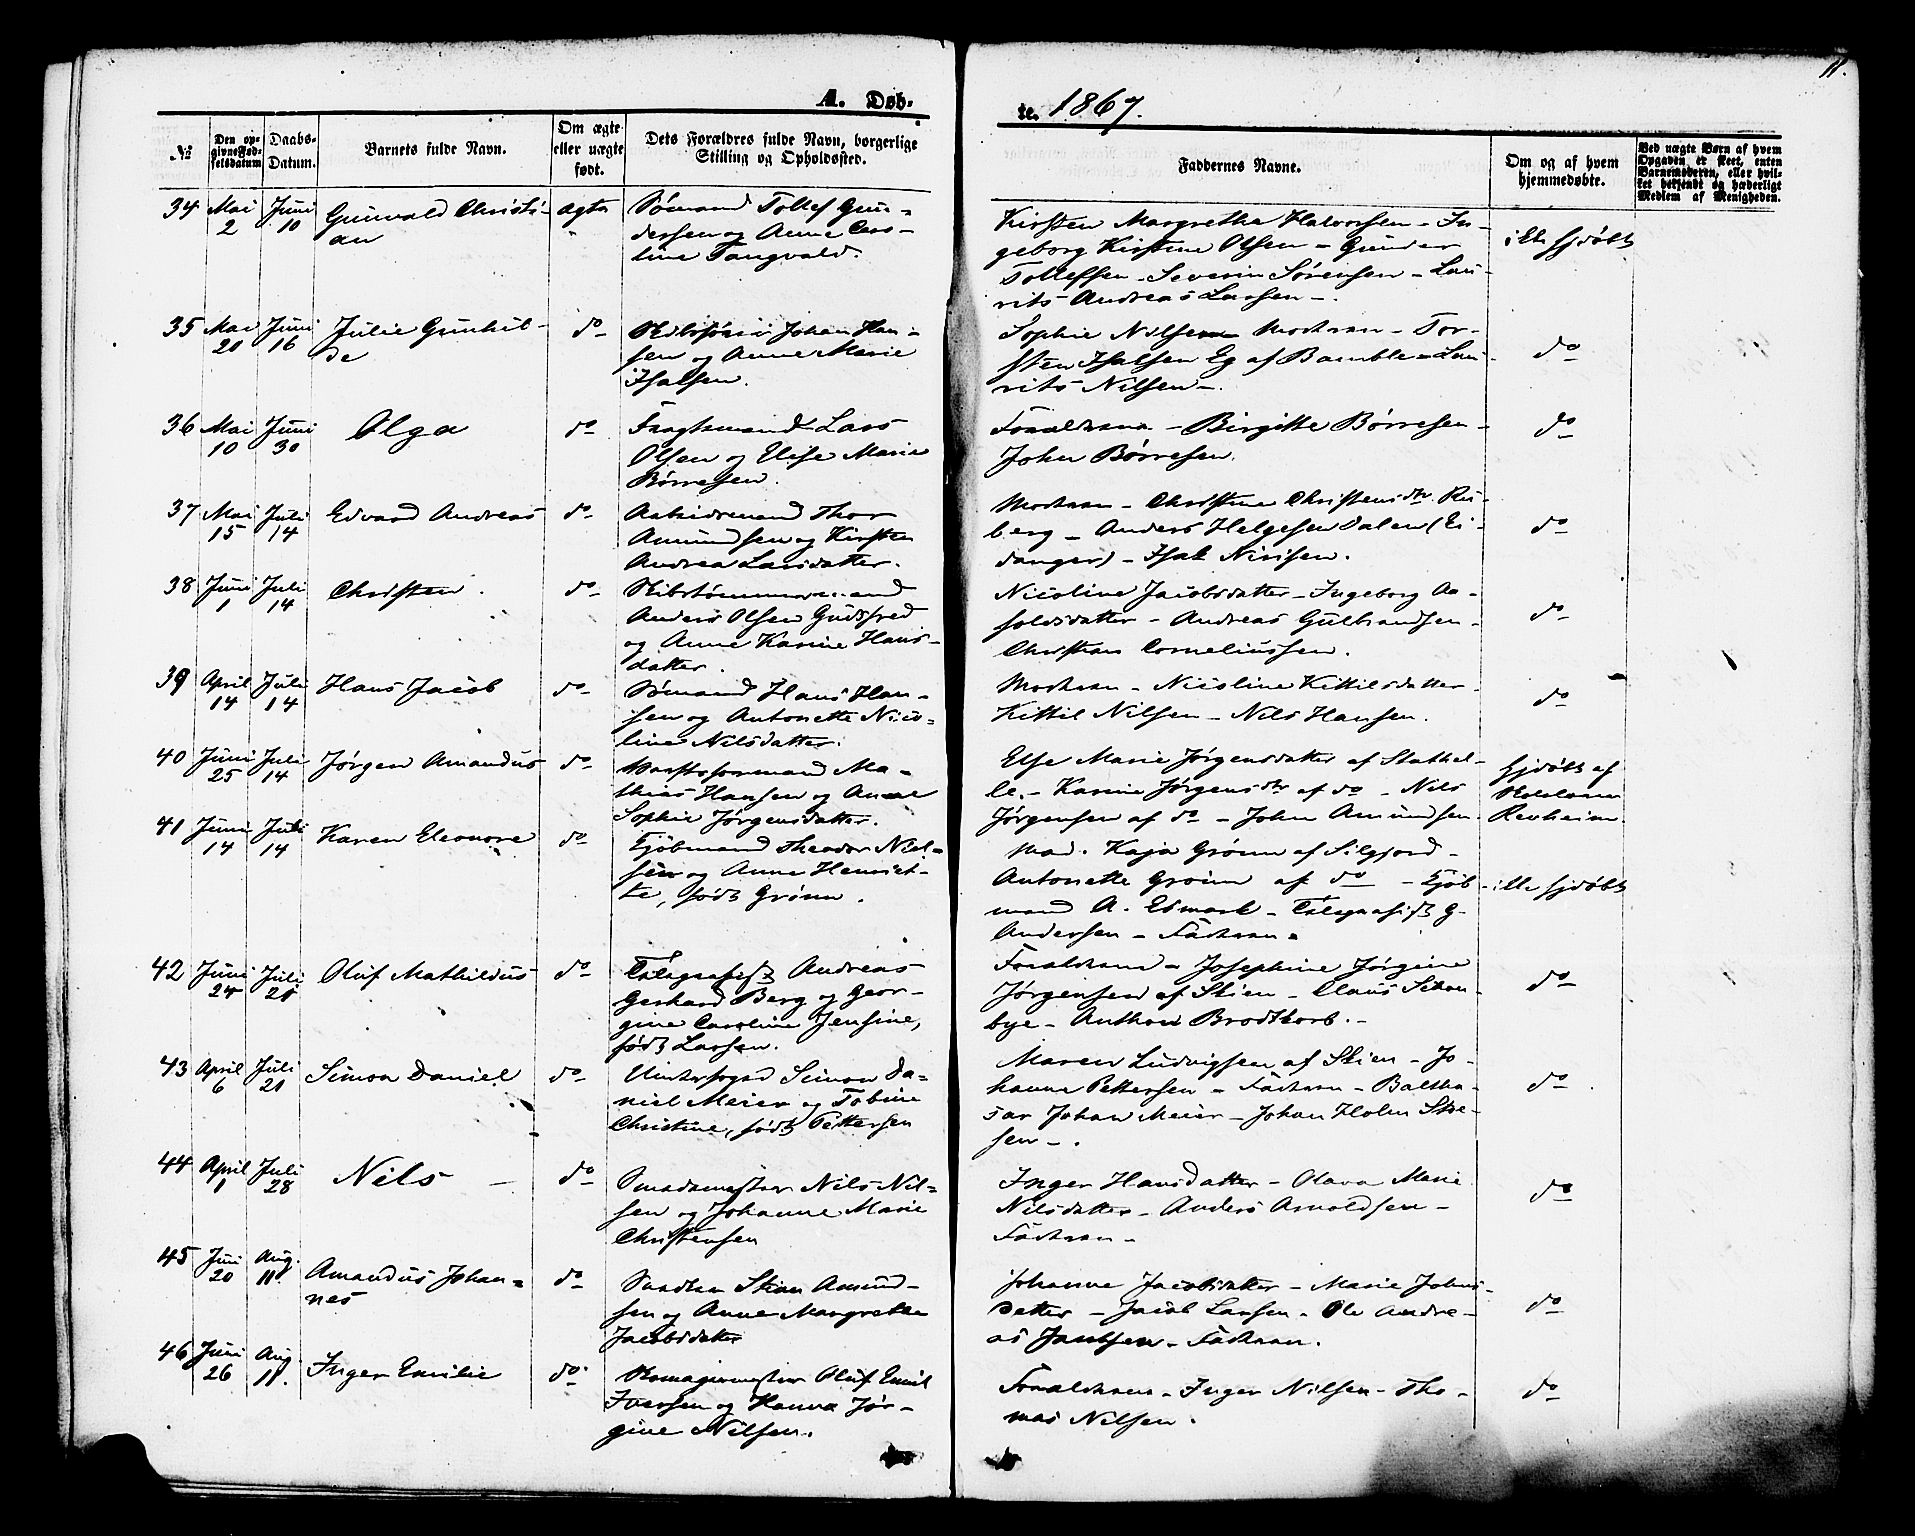 11.
A. Døb-
te. 1867.
№
Den op-
givne Fød-
selsdatum
Daabs-
Datum.
Barnets fulde Navn.
Om ægte
eller uægte
født.
Dets Forældres fulde Navn, borgerlige
Stilling og Opholdssted.
Faddernes Navne.
Om og af hvem
hjemmedøbte.
Ved uægte Børn af hvem
Opgaven er skeet, enten
Barnemoderen, eller hvil-
ket bekjendt og hæderligt
Medlem af Menigheden.
34 Mai 2 Juni 10 Gunvald Christi-
an
ægte
Sømand Tollef Gun-
dersen og Anne Caro-
line Tangvald.
Kirsten Margrethe Halvorsen - In-
geborg Kirstine Olsen - Gunder
Tollefsen - Severin Sørensen - Lau-
rits Andreas Larsen -.
ikke hjdøbt
35 Mai 20 Juni 16 Julie Gunhil-
de
do
Johan Han-
sen og Anne Marie
Isaksen.
Sophie Nilsen - Modren - Tor-
sten Isaksen Eg af Bamble - Lau-
rits Nilsen -.
do
36 Mai 10 Juni 30 Olga
do
Fragtemand Lars
Olsen og Elise Marie
Børresen.
Forældrene - Birgitte Børresen -
John Børresen.
do
37 Mai 15 Juli 14 Edvard Andreas
do
Arbeidsmand Thor
Amundsen og Kirsten
Andrea Larsdatter.
Modren - Christine Christensdtr. Ru-
berg - Anders Helgesen Dalen (Ei-
danger) - Isak Nirisen.
do
38 Juni 1 Juli 14 Christen.
do
Skibstømmermand
Anders Olsen Gudsfred
og Anne Karine Hans-
datter.
Nicoline Jacobsdatter - Ingeborg Aa-
soldsdatter - Andreas Gulbrandsen -
Christian Corneliussen.
do
39 April 14 Juli 14 Hans Jacob
do
Sømand Hans Han-
sen og Antonette Nico-
line Nilsdatter.
Modren - Nicoline Kittilsdatter -
Kittil Nilsen - Nils Hansen.
do
40 Juni 25 Juli 14 Jørgen Amandus
do
Værftsformand Ma-
thias Hansen og Anne
Sophie Jørgensdatter.
Else Marie Jørgensdatter af Stathel-
le. - Karine Jørgensdtr af do - Nils
Jørgensen af do - John Amundsen.
hjdøbt af
Revheim.
41 Juni 14 Juli 14 Karen Eleonore
do
Kjøbmand Theodor Niel-
sen og Anne Henriet-
te, født Grönn.
Mad. Kaja Grönn af Silgjord -
Antonette Grönn af do - Kjøb-
mand A. Esmark - Telegrafist G.
Andersen - Fadren -
ikke hjdøbt
42 Juni 24 Juli 21 Oluf Mathildus
do
Telegrafist Andreas
Gerhard Berg og Geor-
gine Caroline Jensine,
født Larsen.
Forældrene - Josephine Jørgine
Jørgensen af Skien - Claus Schou-
bye - Anthon Brodtkorb. -
do
43 April 6 Juli 21 Simon Daniel
do
Underfoged Simon Da-
niel Meier og Tobine
Christine, født Pettersen
Maren Ludvigsen af Skien - Jo-
hanne Pettersen - Fadren - Baltha-
sar Johan Meier - Johan Holm
sen -.
do
44 April 1 Juli 28 Nils -
do
Smedemester Nils Nil-
sen og Johanne Marie
Christensen
Inger Hansdatter - Olava Marie
Nilsdatter - Anders Arnoldsen -
Fadren -
do
45 Juni 20 Aug. 11. Amandus Johan-
nes
do
Snedker Stian Amund-
sen og Anne Margrethe
Jacobsdatter
Johanne Jacobsdatter - Marie Johns-
datter - Jacob Larsen - Ole Andre-
as Jantzen - Fadren.
do
46 Juni 26 Aug. 11. Inger Emilie
do
Skomagermester Oluf Emil
Iversen og Hanna Jør-
gine Nilsen.
Forældrene - Inger Nilsen - Tho-
mas Nilsen.
do